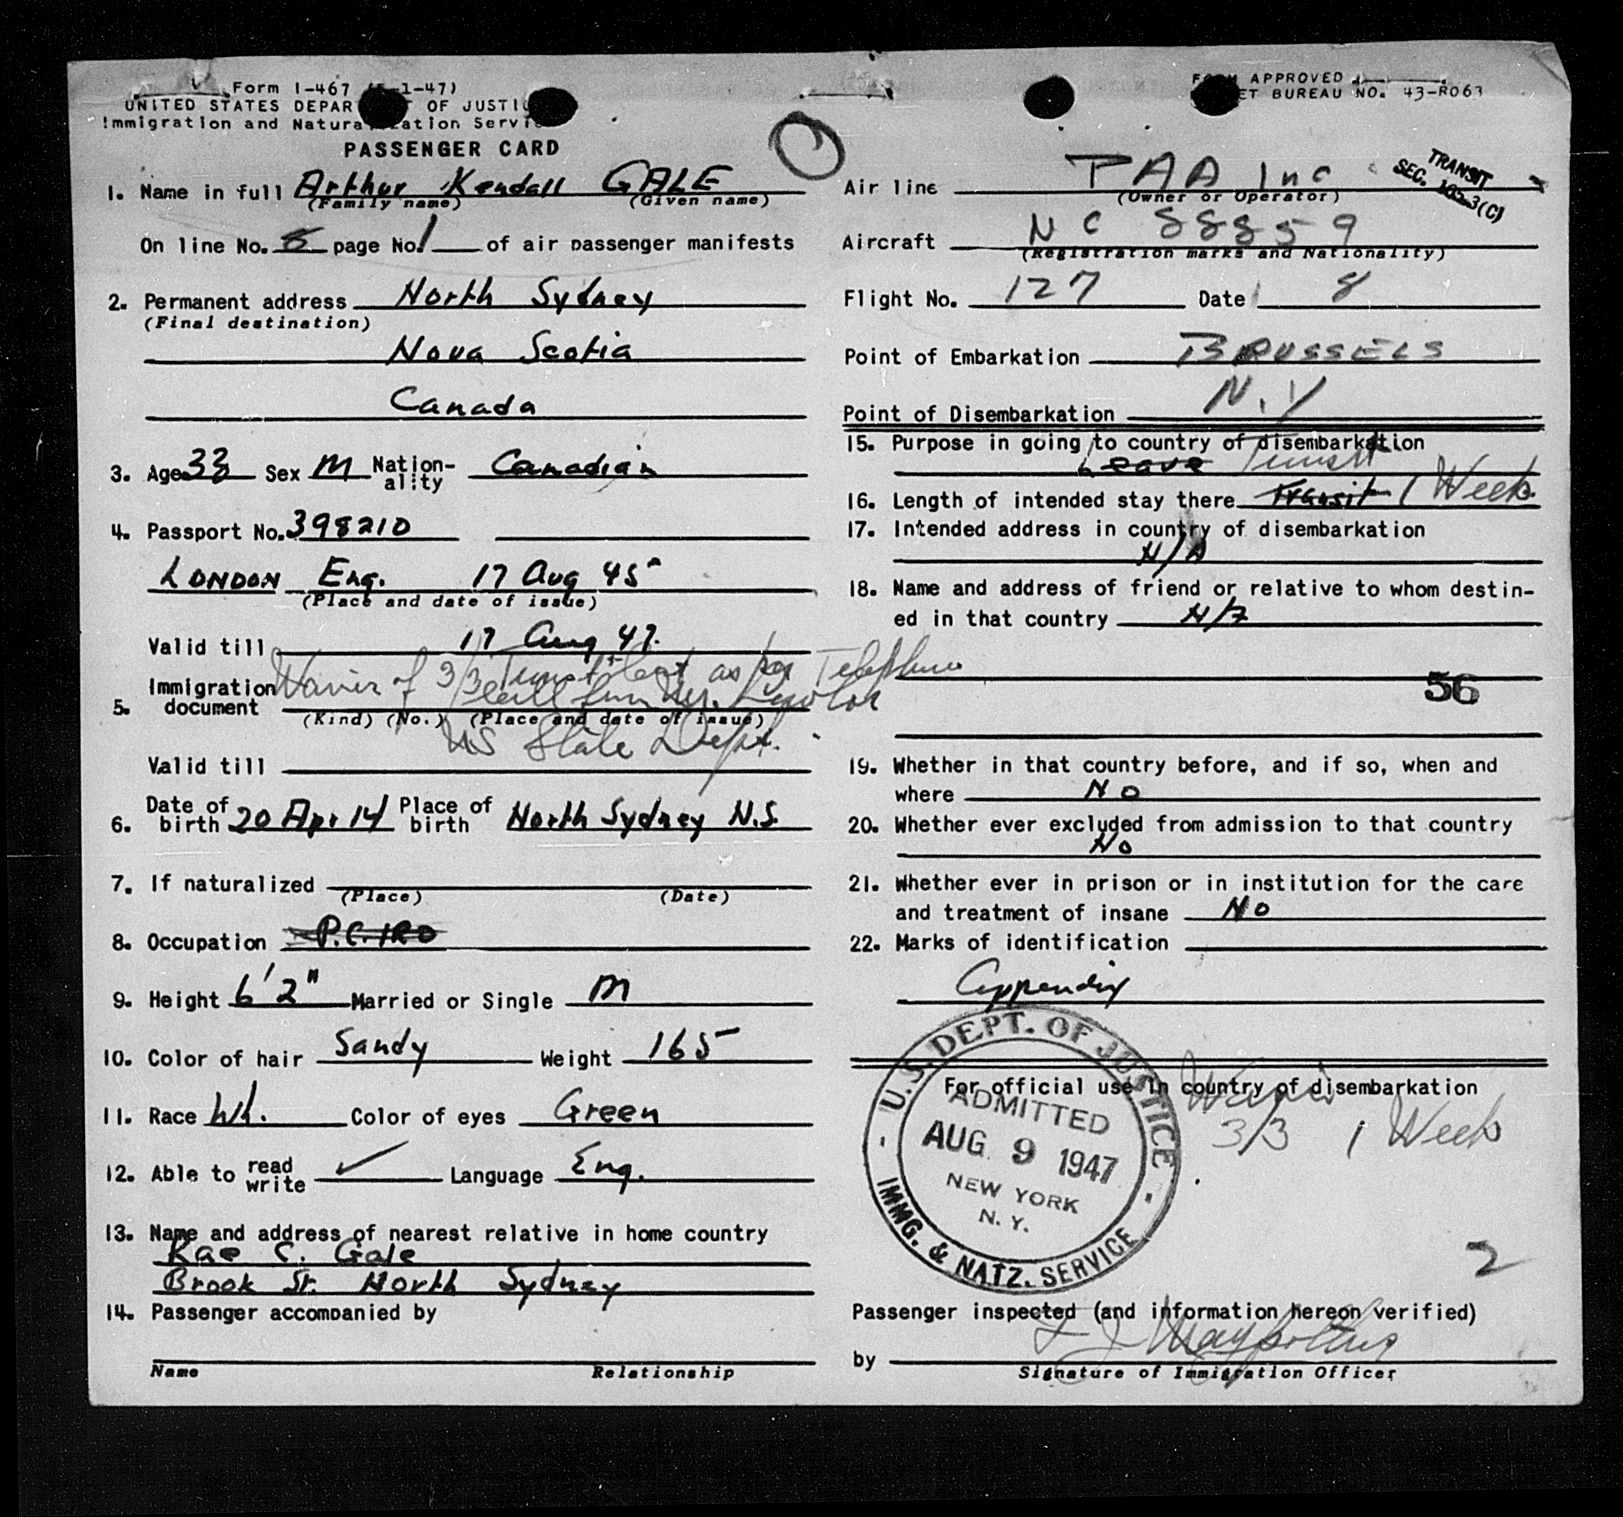 Form I-467 -1-47)
UNITED STATES DEPAR T OF JUSTI
Immigration and Natura ation Servi
PASSENGER CARD
FO M APPROVED
ET BUREAU NO. 43-R063
1. Name in full Arthur Kendall GALE
(Family name) (Given name)
On line No. 8 page No. 1 of air passenger manifests
2. Permanent address North Sydney
(Final destination)
Nova Scotia
Canada
3. Age 33 Sex M Nation-ality Canadian
4. Passport No. 398210
LONDON Eng. 17 Aug 45
(Place and date of issue)
Valid till 17 Aug 47.
Waiver of 3/3 as per Telephone
5. Immigration document call from Mr. Lawlor
(Kind) (No.) (Place and date of issue)
US State Dept.
Valid till
6. Date of birth 20 Apr 14 Place of birth North Sydney N.S.
7. If naturalized
(Place) (Date)
8. Occupation P.C. IRO
9. Height 6'2" Married or Single M
10. Color of hair Sandy Weight 165
11. Race Wh. Color of eyes Green
12. Able to read write ✓ Language Eng.
13. Name and address of nearest relative in home country
Rae C. Gale
Brook St. North Sydney
14. Passenger accompanied by
Name Relationship
Air line PAA Inc
(Owner or Operator)
TRANSIT
SEC. 3(C)
Aircraft NC 88859
(Registration marks and Nationality)
Flight No. 127 Date 8
Point of Embarkation BRUSSELS
Point of Disembarkation N.Y
15. Purpose in going to country of disembarkation
Leave Transit
16. Length of intended stay there Transit 1 Week
17. Intended address in country of disembarkation
N/A
18. Name and address of friend or relative to whom destin-
ed in that country N/A
56
19. Whether in that country before, and if so, when and
where No
20. Whether ever excluded from admission to that country
No
21. Whether ever in prison or in institution for the care
and treatment of insane No
22. Marks of identification
Appendix
For official use in country of disembarkation
Waiver
3/3 1 Week
U.S. DEPT. OF JUSTICE
ADMITTED
AUG 9 1947
NEW YORK
N.Y.
IMMG. & NATZ. SERVICE
2
Passenger inspected (and information hereon verified)
by
Signature of Immigration Officer